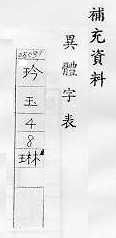 補充資料
異體字表
玲
玉
4
8
琳